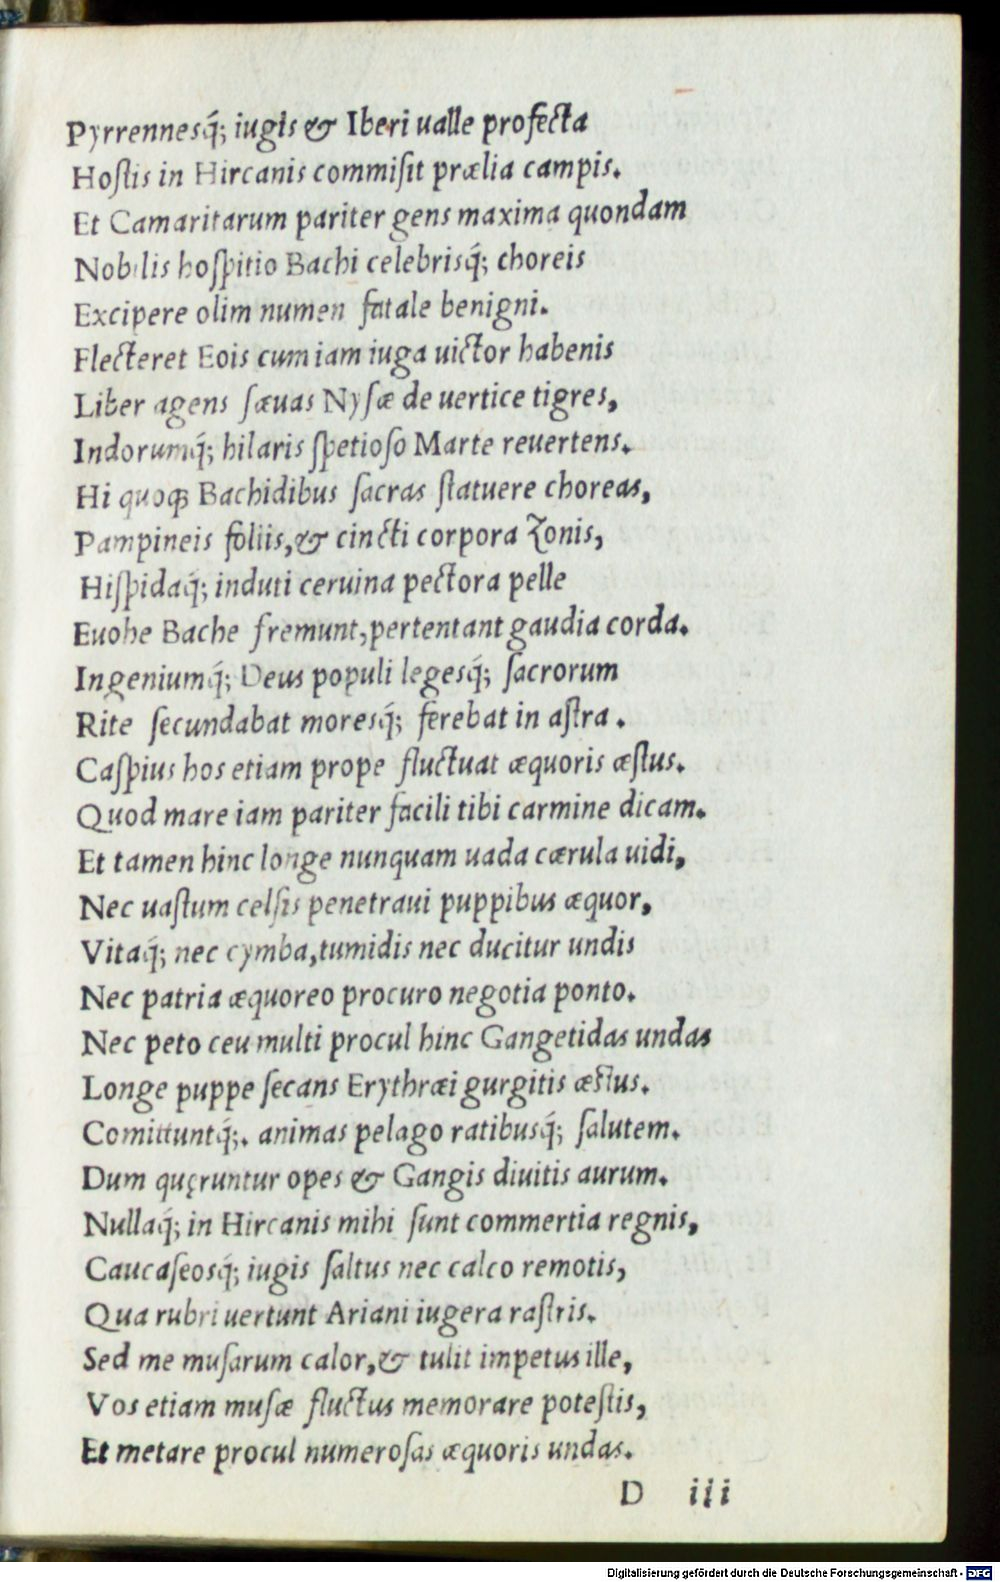 Pyrrennesq́; iugis & Iberi ualle profecta
Hoſtis in Hircanis commiſit prælia campis.
Et Camaritarum pariter gens maxima quondam
Nobilis hoſpitio Bachi celebrisq́; choreis
Excipere olim numen fatale benigni.
Flecteret Eois cum iam iuga uictor habenis
Liber agens ſæuas Nyſæ de uertice tigres,
Indorumq́; hilaris ſpetioſo Marte reuertens.
Hi quoqꝫ Bachidibus ſacras ſtatuere choreas,
Pampineis foliis,& cincti corpora Zonis,
Hiſpidaq́; induti ceruina pectora pelle
Euohe Bache fremunt,pertentant gaudia corda.
Ingeniumq́; Deus populi legesq́; ſacrorum
Rite ſecundabat moresq́; ferebat in aſtra.
Caſpius hos etiam prope fluctuat æquoris æſtus.
Quod mare iam pariter facili tibi carmine dicam.
Et tamen hinc longe nunquam uada cærula uidi,
Nec uaſtum celſis penetraui puppibus æquor,
Vitaq́; nec cymba,tumidis nec ducitur undis
Nec patria æquoreo procuro negotia ponto.
Nec peto ceu multi procul hinc Gangetidas undas
Longe puppe ſecans Erythræi gurgitis æſtus.
Comittuntq́;. animas pelago ratibusq́; ſalutem.
Dum quęruntur opes & Gangis diuitis aurum.
Nullaq́; in Hircanis mihi ſunt commertia regnis,
Caucaſeosq́; iugis ſaltus nec calco remotis,
Qua rubri uertunt Ariani iugera raſtris.
Sed me muſarum calor,& tulit impetus ille,
Vos etiam muſæ fluctus memorare poteſtis,
Et metare procul numeroſas æquoris undas.
D iii
Digitalisierung gefördert durch die Deutsche Forschungsgemeinschaft - DFG